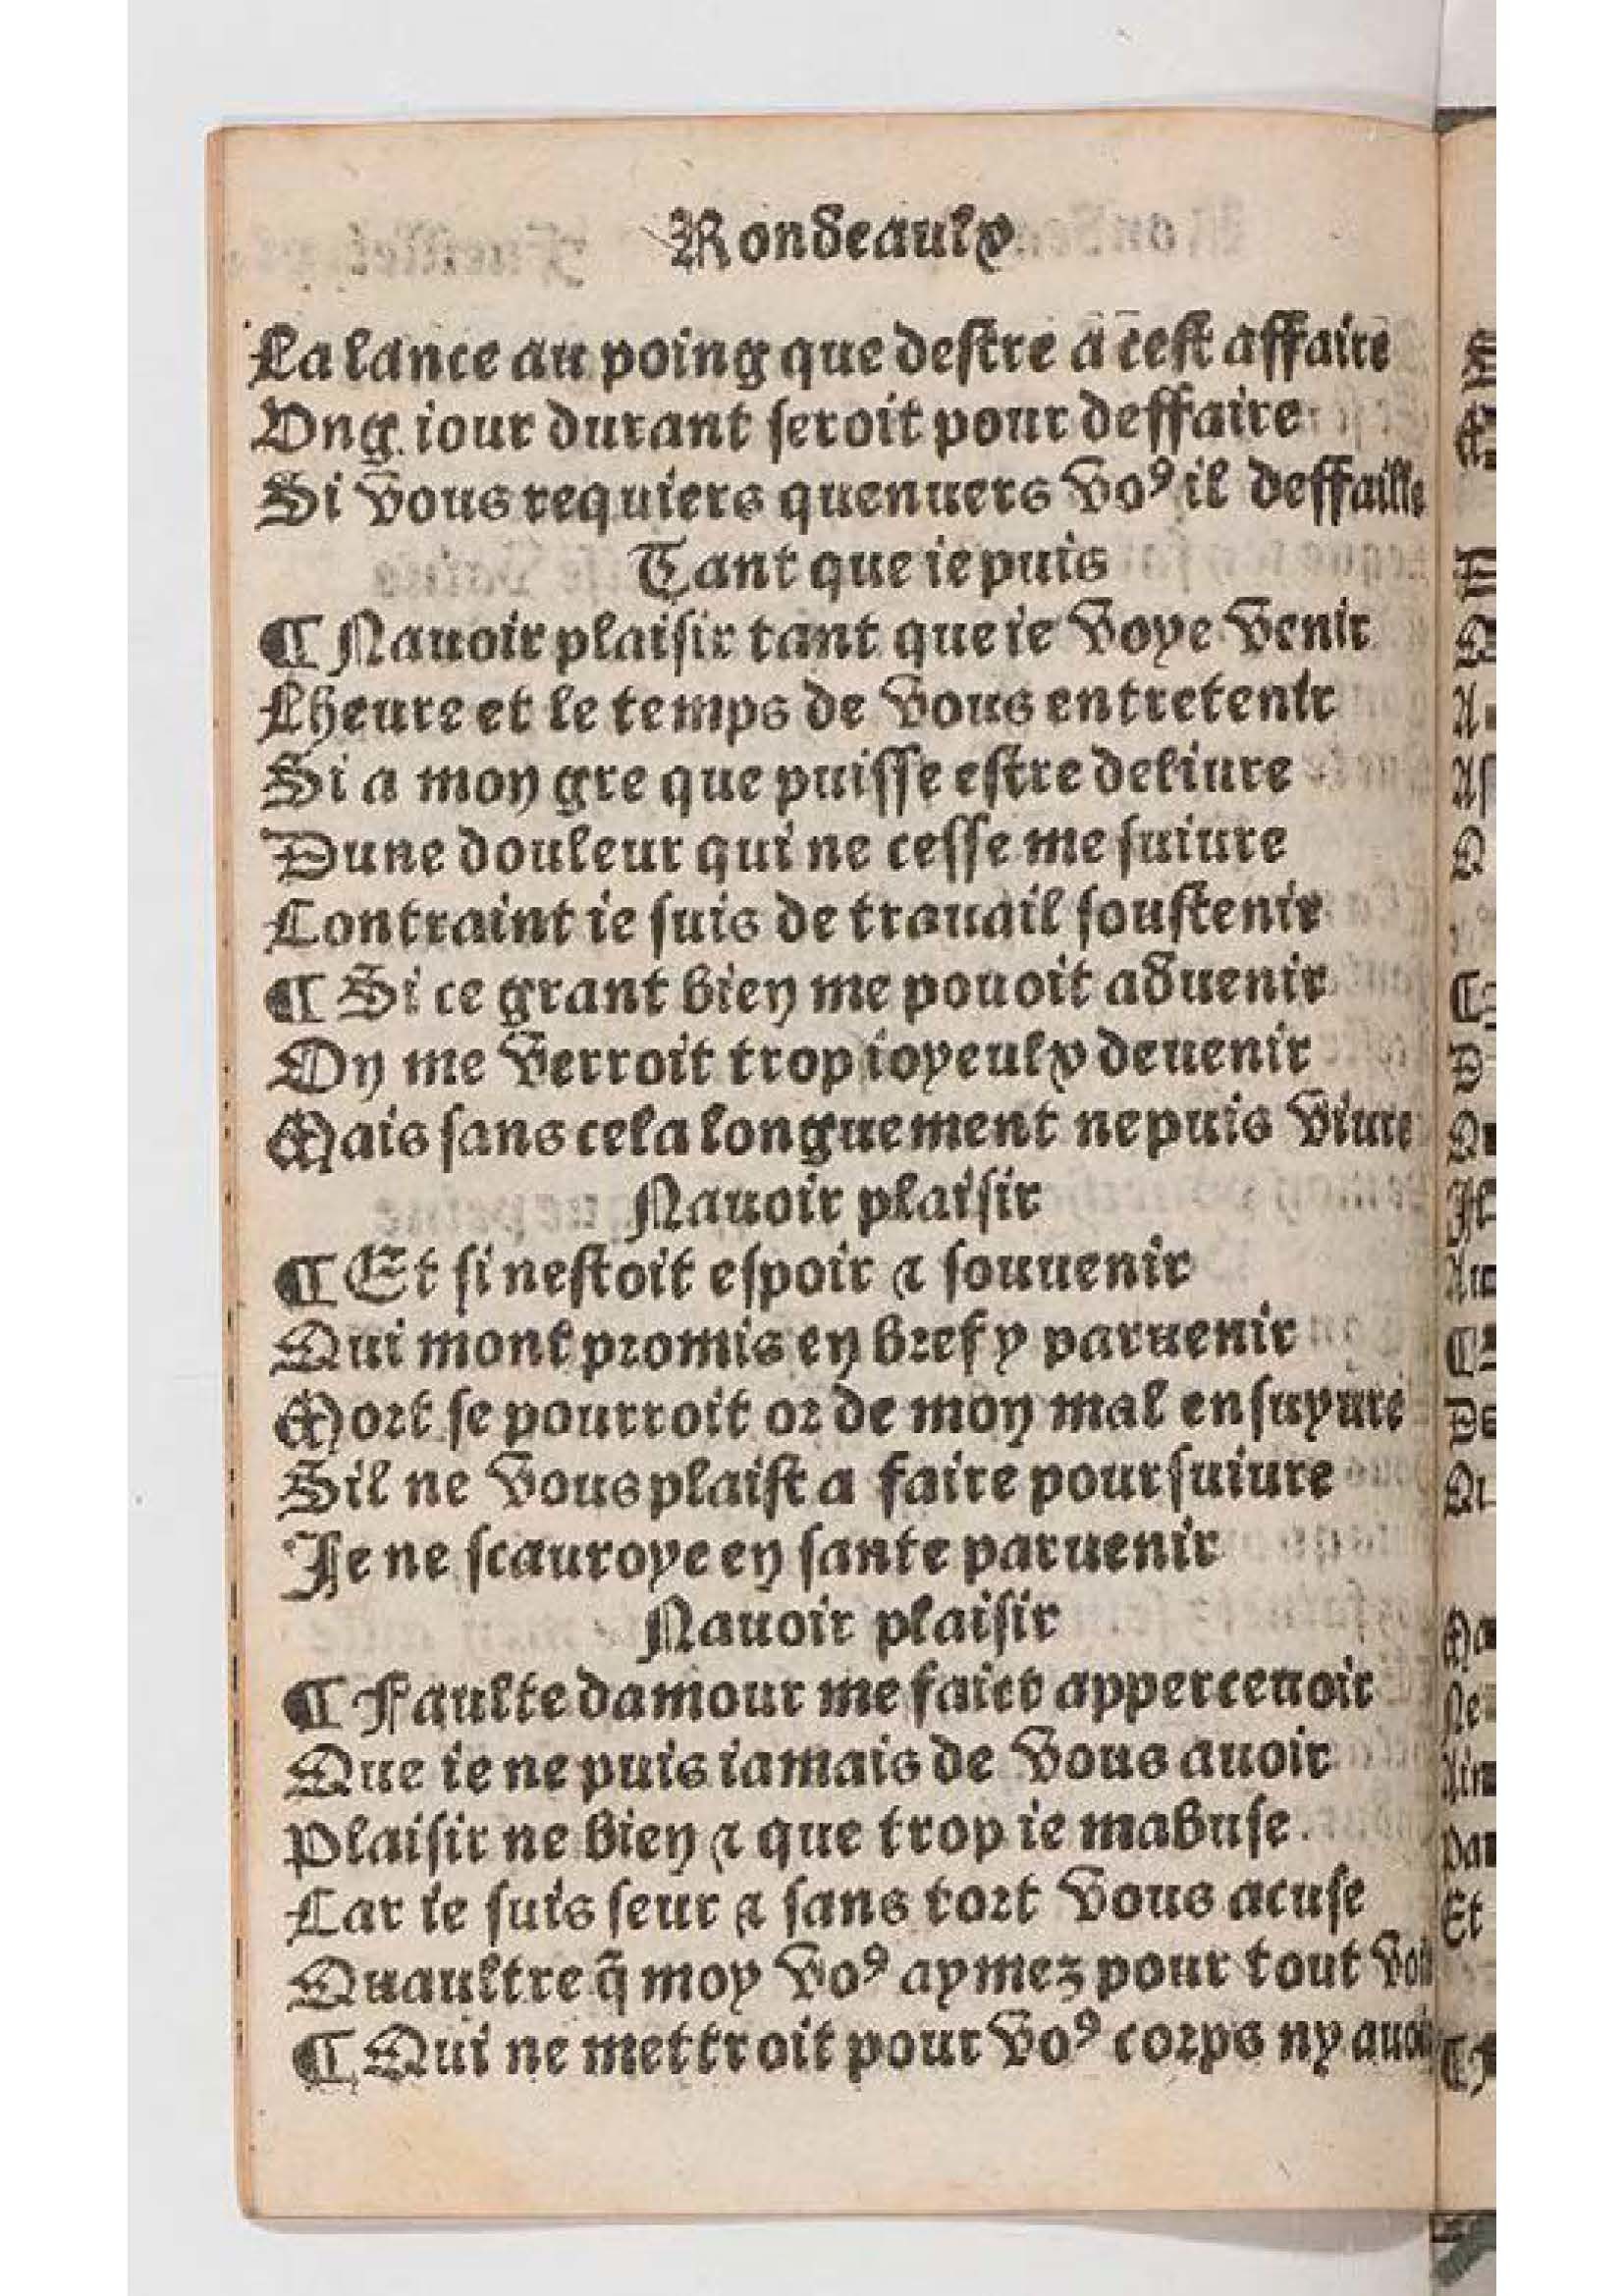 Rondeaulx
La lance au poing que destre a cest affaire
Ung iour durant seroit pour deffaire
Si vous requiers quenuers voꝰ il deffaille
Tant que ie puis
¶ Nauoir plaisir tant que ie voye venir
Lheure et le temps de vous entretenir
Si a mon gre que puisse estre deliure
Dune douleur qui ne cesse me suiure
Contraint ie suis de trauail soustenir
¶ Si ce grant bien me pouoit aduenir
On me verroit trop ioyeulx deuenir
Mais sans cela longuement ne puis viure
Nauoir plaisir
¶ Et si nestoit espoir & souuenir
Qui mont promis en bref y paruenir
Mort se pourroit or de mon mal ensuyure
Sil ne vous plaist a faire poursuiure
Je ne scauroye en sante paruenir
Nauoir plaisir
¶ Faulte damour me faict apperceuoir
Que ie ne puis iamais de vous auoir
Plaisir ne bien & que trop ie mabuse.
Car ie suis seur & sans tort vous acuse
Quaultre q̃ moy voꝰ aymez pour tout
¶ Qui ne mettroit pour voꝰ corps ny auoir